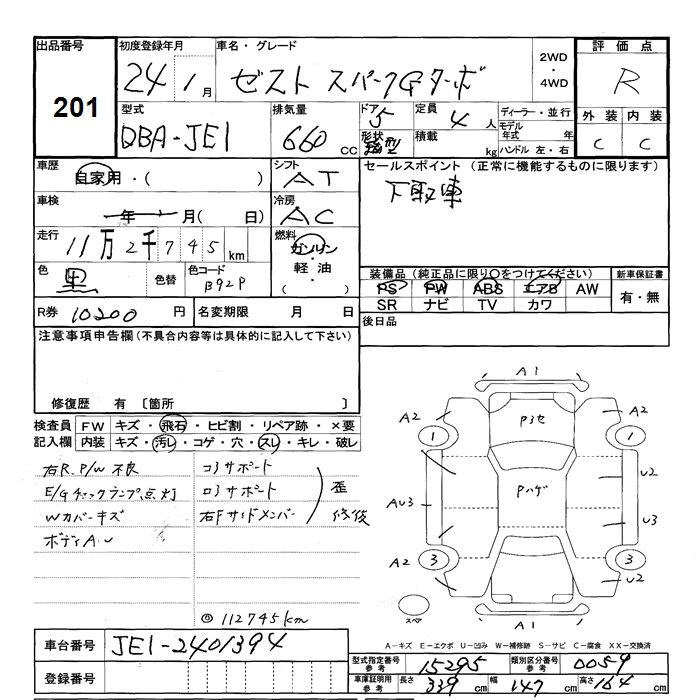 出品番号 初度登録年月 車名・グレード 2WD ・ 4WD 評価点
201 24 1月 ゼスト スパークGターボ R
型式 排気量 ドア 定員 ディーラー・並行 外装 内装
DBA-JE1 660 cc 5 形状 4人 積載 kg モデル年式 年 ハンドル 左・右 C C
車歴 自家用・( ) シフト AT セールスポイント(正常に機能するものに限ります)
下取車
車検 年 月( 日) 冷房 AC
走行 11万2千745km 燃料 ガソリン・軽油・( )
色 黒 色替 色コード B92P 装備品(純正品に限り○をつけてください) 新車保証書
PS PW ABS エアB AW 有・無
SR ナビ TV カワ
R券 10200円 名変期限 月 日 後日品
注意事項申告欄(不具合内容等は具体的に記入して下さい)
修復歴 有 〔箇所 〕
検査員記入欄 FW キズ・飛石・ヒビ割・リペア跡・×要
内装 キズ・汚レ・コゲ・穴・スレ・キレ・破レ
右R.P/W不良 コアサポート
E/Gチェックランプ点灯 ロアサポート 歪
Wカバーキズ 右Fサイドメンバー 修復
ボディA.U
◎112745km
A1
A2 P3セ A2
1 1
U2
AU3 Pハゲ
U3
A2 3 3 U2
スペア A1
A-キズ E-エクボ U-凹み W-補修跡 S-サビ C-腐食 XX-交換済
車台番号 JE1-2401394
型式指定番号 参考 15295 類別区分番号 参考 0059
登録番号 車庫証明用 参考 長さ 339cm 幅 147cm 高さ 164cm